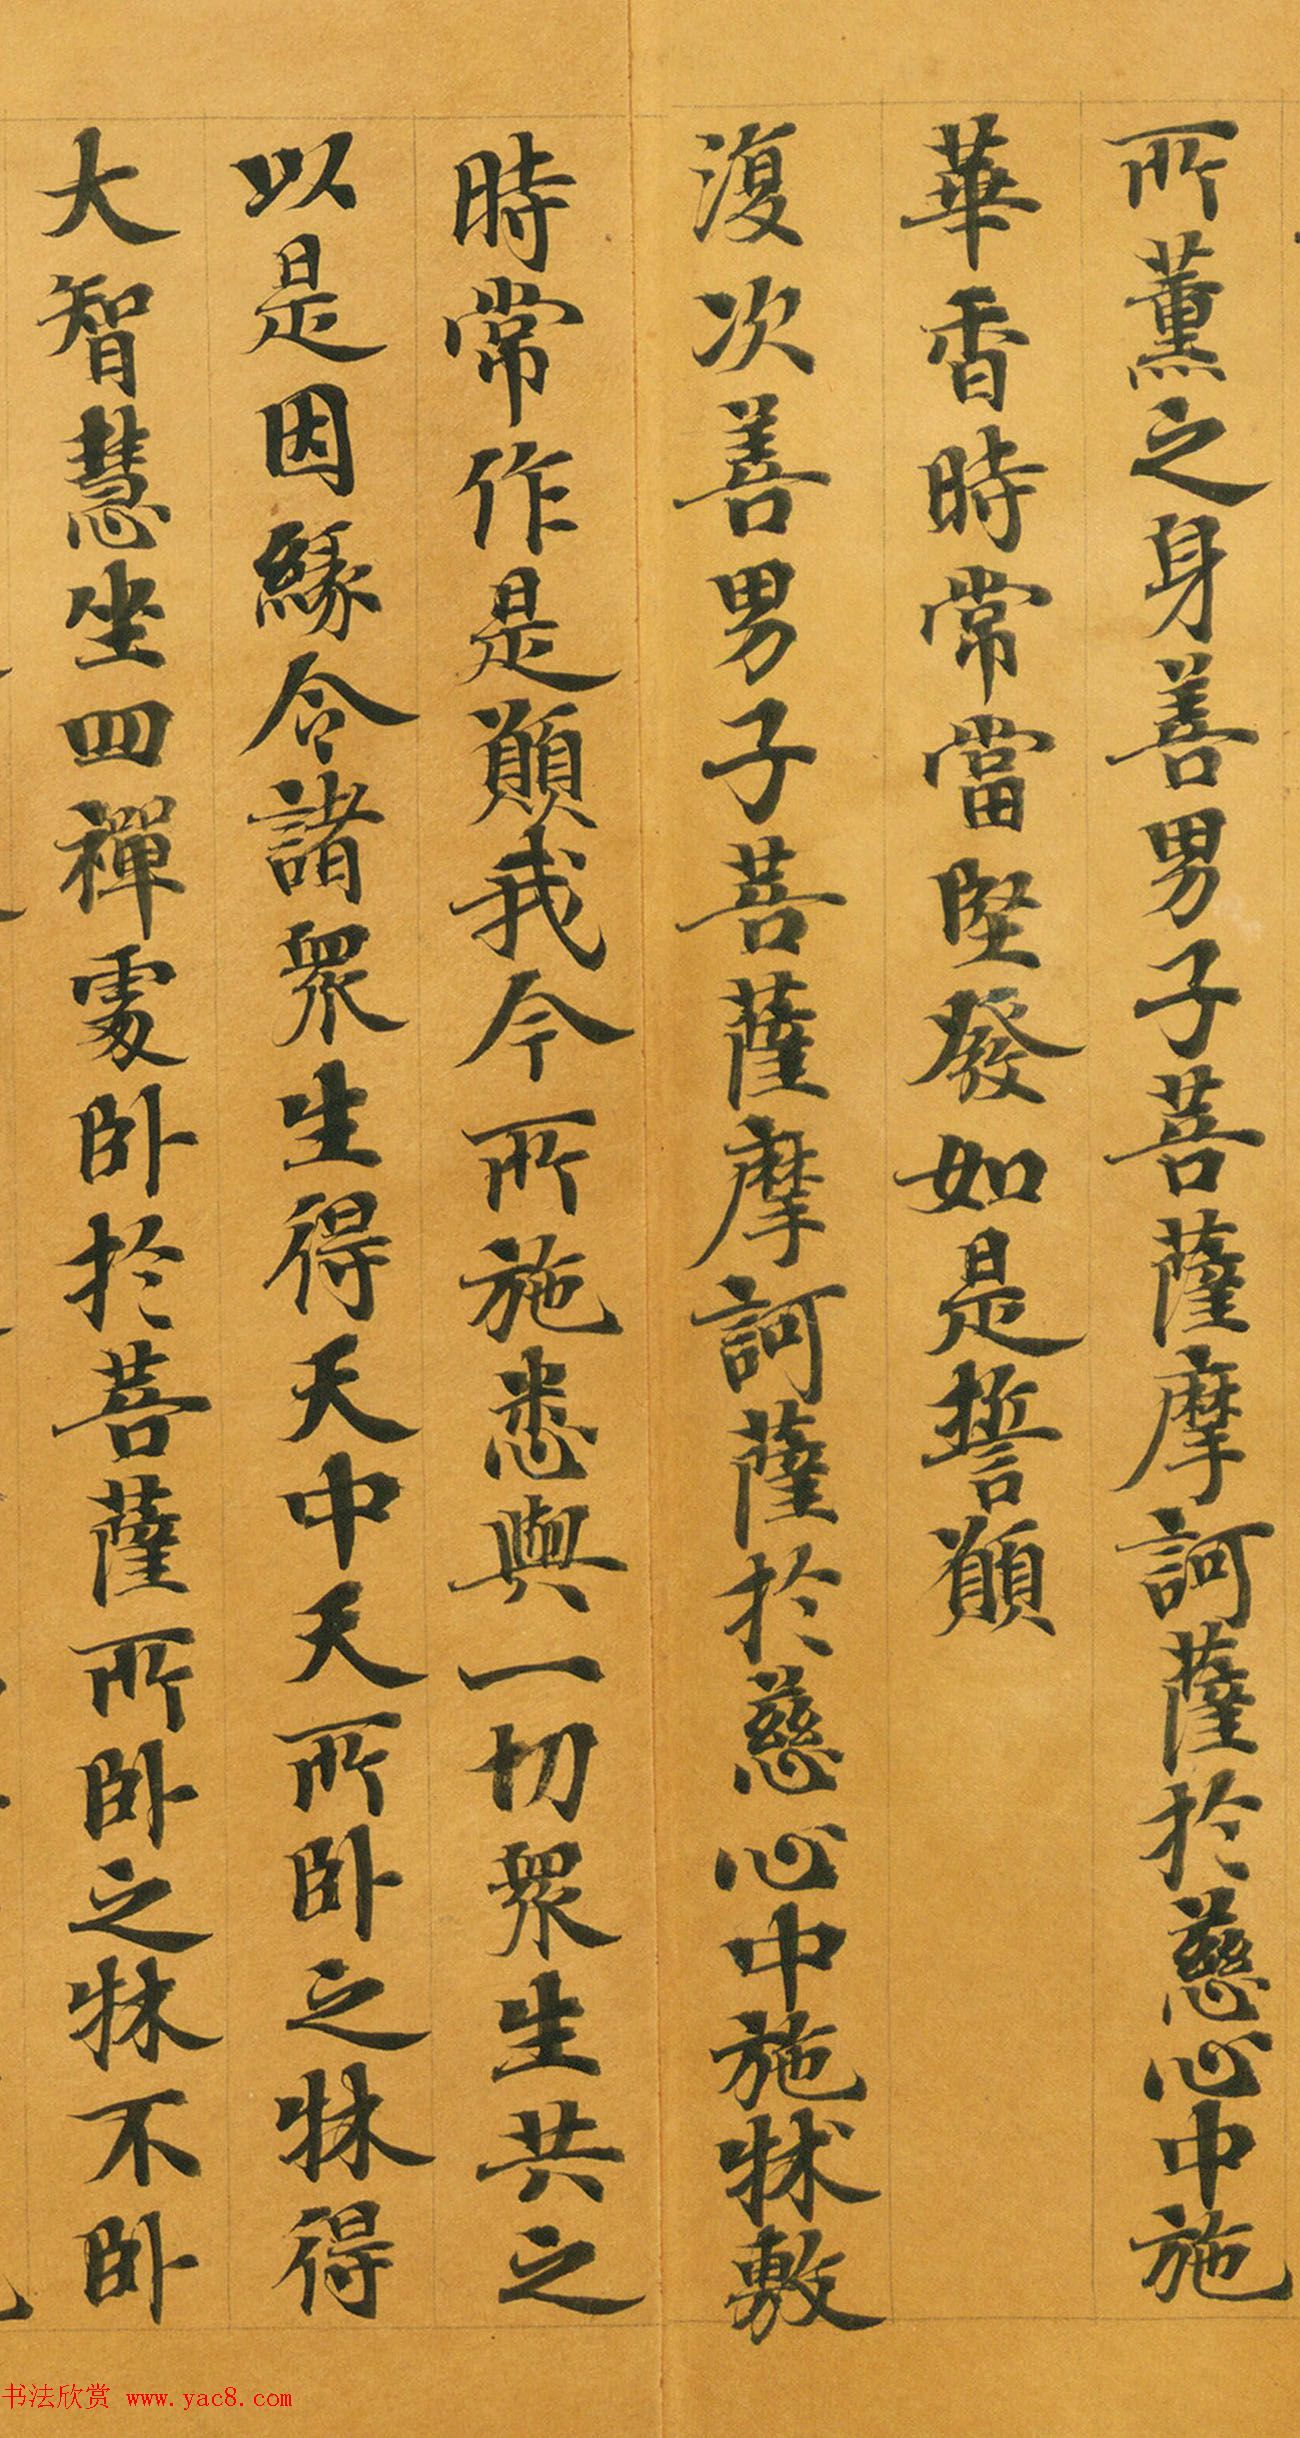 所薰之身善男子菩薩摩訶薩於慈心中施
華香時常當堅發如是誓願
復次善男子菩薩摩訶薩於慈心中施牀敷
時常作是願我今所施悉與一切眾生共之
以是因緣令諸眾生得天中天所臥之牀得
大智慧坐四禪處臥於菩薩所臥之牀不臥
书法欣赏 www.yac8.com